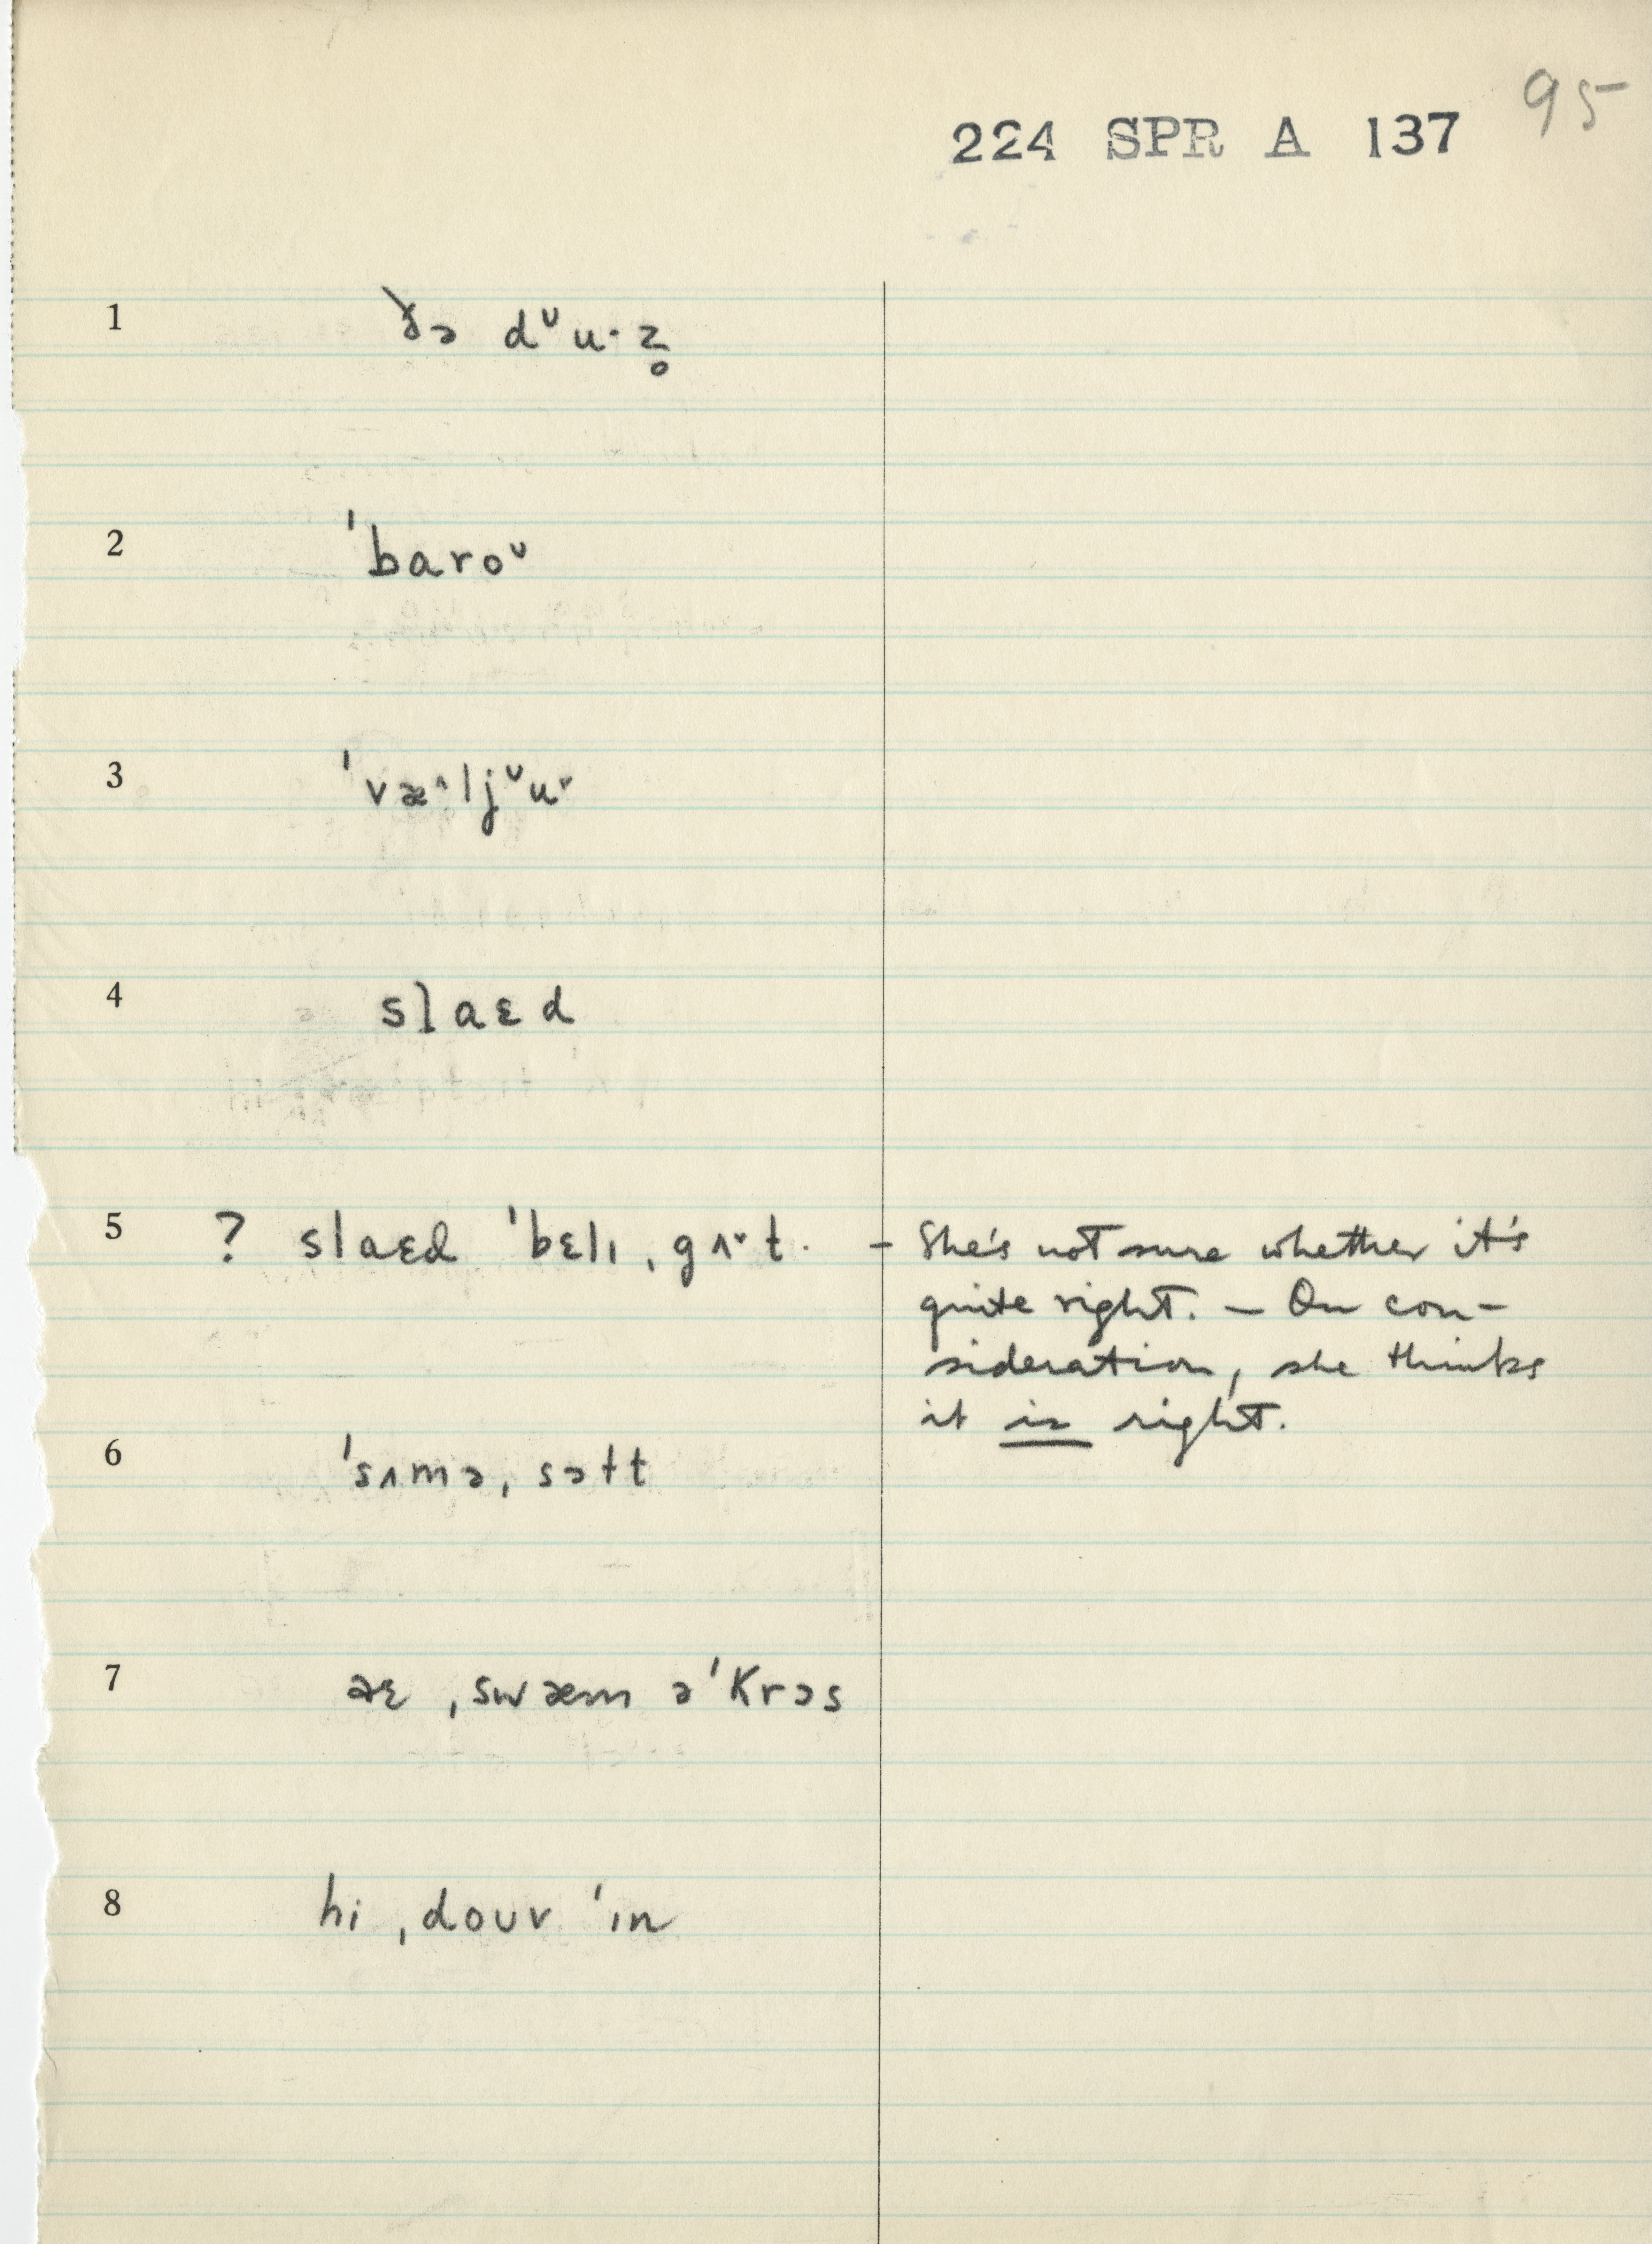 95
224 SPR A 137
1 ðə dᶷu·z̥
2 ˈbaroᶷ
3 ˈvæ˄ljᶷu˅
4 slaɛd
5 ? slaɛd ˈbɛlɪ ˌgʌ˅t. – She's not sure whether it's
quite right. – On con-
sideration, she thinks
it is right.
6 ˈsʌmə ˌsɔɫt
7 aɛ ˌswæm əˈkrɔs
8 hi ˌdoʊv ˈɪn